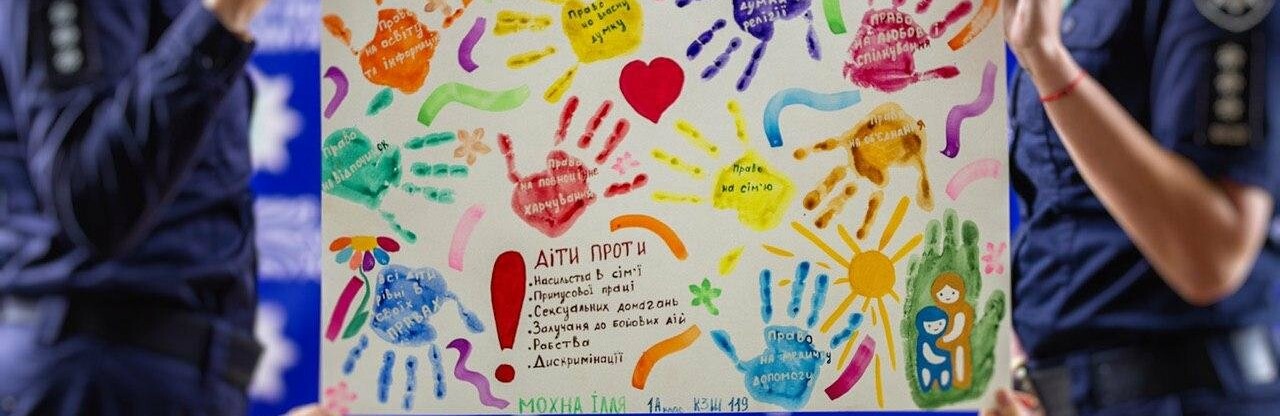 Право
на освіту
та інформацію
на власну
думку
релігії
Право
на любов і
спілкування
Право
на відпочинок
Право
на повноцінне
харчування
Право
на сім'ю
Право
на об'єднання
Всі діти
рівні в
своїх
правах
ДІТИ ПРОТИ
.Насильства в сім'ї
.Примусової праці
.Сексуальних домагань
.Залучаня до бойових дій
.Рабства
.Дискримінації
Право
на медичну
допомогу
МОХНА ІЛЛЯ 1А клас КЗШ 119